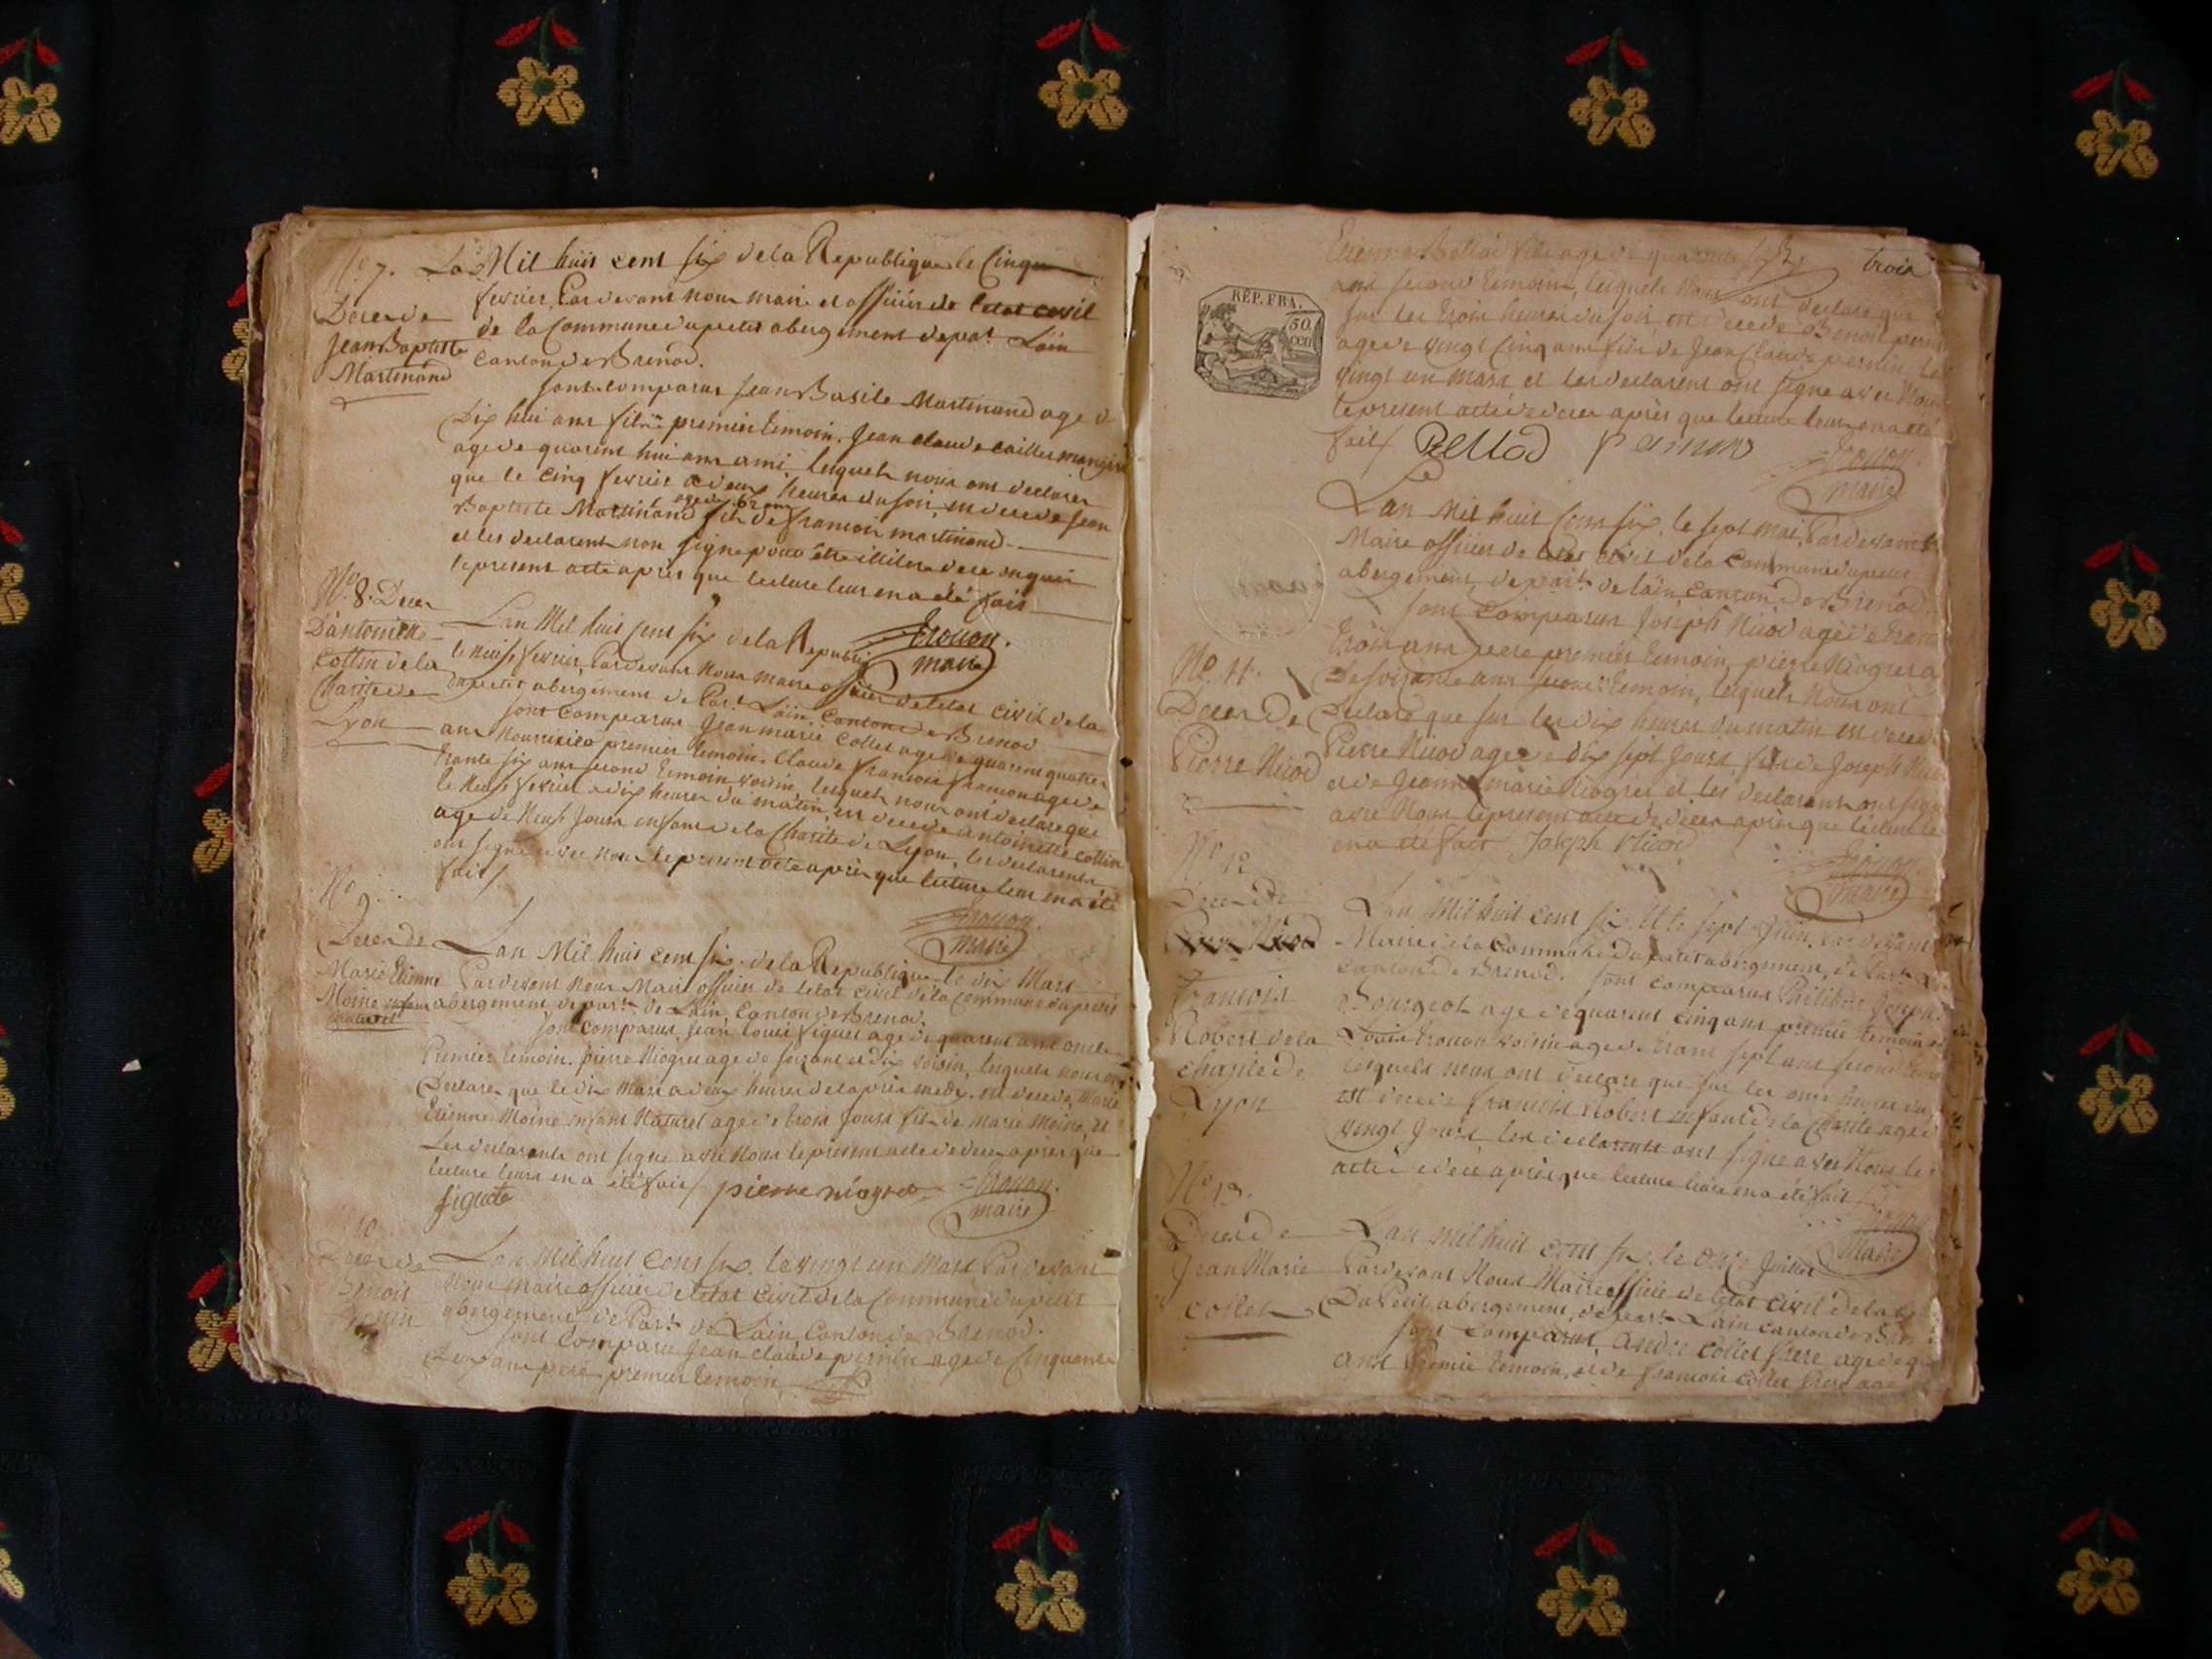 N.° 7.
Deces de
Jean Baptiste
Martinand
Lan Mil huit cent six de la Republique le Cinq
fevrier, Pardevant nous maire et officier de letat civil
de la Commune du petit abergement depat. Lain
Canton de Brenod.
sont comparus Jean Basile Martinand age de
Dix hui ans fils premier temoin. Jean claude
age de quarent hui ans ami lesquels nous ont declarer
que le cinq fevrier a deux heures du soir, est decede Jean
Baptiste Martinand age de 62 ans fils de francois martinand
et les declarents non signe pour être illiteré de ce enquis
le present acte après que lecture leurs en a été fait
Trouon.
maire
N.° 8. Deces
D'antoinette
Cottin de la
Charite de
Lyon
Lan Mil huit cent six de la Republi
le neuf fevrier, Pardevant nous maire officier de letat civil de la
du petit abergement de Part. Lain, Canton de Brenod
sont comparus Jean marie Collet age de quarent quatre
ans nouricier premier temoin. Claude francois age de
trante six ans second temoin voisin, lesquels nous ont declare que
le neuf fevrier a dix heures du matin, est decede antoinette Cottin
age de Neuf Jours enfant de la Charite de Lyon, les declarents
ont signe avec nous le present acte après que lecture leur en a été
fait
Trouon.
maire
N.° 9.
Deces de
Marie Etienne
Moine enfant
naturel
Lan Mil huit cent six de la Republique le dix Mars
Pardevant nous Maire officier de letat civil de la Commune du petit
abergement, depart. de Lain, Canton de Brenod.
sont comparus, Jean Louis figuet age de quarent ans oncle
Premier temoin. pierre Niogret age de soixant et dix voisin, lesquels nous ont
Declarer que le dix Mars a deux heures de laprès medy. est decede, Marie
Etienne Moine enfant Naturel age de trois Jours fils de Marie Moine, et
Les declarants ont signe avec Nous le present acte de deces après que
lecture leurs en a été fait
figuet pierre niogret Trouon.
maire
10
Deces de
Benoit
Pernin
Lan Mil huit Cent six. le vingt un Mars Pardevant
Nous maire officier de letat civil de la Commune du petit
abergement, de Part. de Lain, Canton de Brenod.
sont comparu Jean Claude pernin age de Cinquante
Deux ans pere premier temoin,
trois
REP. FRA.
50
cen
Etienne Bellod age de quarante
ans second temoin, lesquels Nous ont declare que
sur les trois heures du soir, est decede Benoit pernin
age de vingt cinq ans fils de Jean Claude pernin, le
vingt un mars et les declarent ont signe avec Nous
le present acte de deces après que lecture leurs en a été
fait Bellod Pernin Trouon.
maire
N.° 11.
Deces de
Pierre Nicod
Lan Mil huit Cent six, le sept mai, Pardevant
Maire officier de letat civil de la Commune du petit
abergement, de part. de lain, Canton de Brenod
sont comparus Joseph Nicod age de trant
trois ans pere premier temoin, pierre Niogret a
De soixante ans second temoin, lesquels Nous ont
Declare que sur les dix heures du matin est decede
Pierre Nicod age de dix sept Jours, fils de Joseph Nicod
et de Jeanne marie Niogret et les declarents ont signe
avec Nous le present acte de deces après que lecture le
en a été fait Joseph Nicod
Trouon.
maire
N.° 12
Deces de
francois
Robert de la
charite de
Lyon
Lan Mil huit cent six et le sept Juin, Pardevant
Maire de la Commune du petit abergement, de Part.
canton de Brenod. sont comparus Philibert Joseph
Bourgeot age de quarent cinq ans premier temoin et
Louis trouon voisin age de trant sept ans second temoin
lesquels nous ont declare que sur les onze heures du
est decede francois Robert enfant de la Charite age de
vingt Jours les declarents ont signe avec Nous le
acte de deces après que lecture leurs en a été fait
Trouon
Maire
N.° 13.
Deces de
Jean Marie
Collet
Lan mil huit cent six. le onze Juillet
Pardevant Nous Maire officier de letat civil de la
Du Petit abergement, de part. Lain canton de Bren
sont comparus, andre Collet frere age de q
ans Premier temoin, et de francois Collet frere age